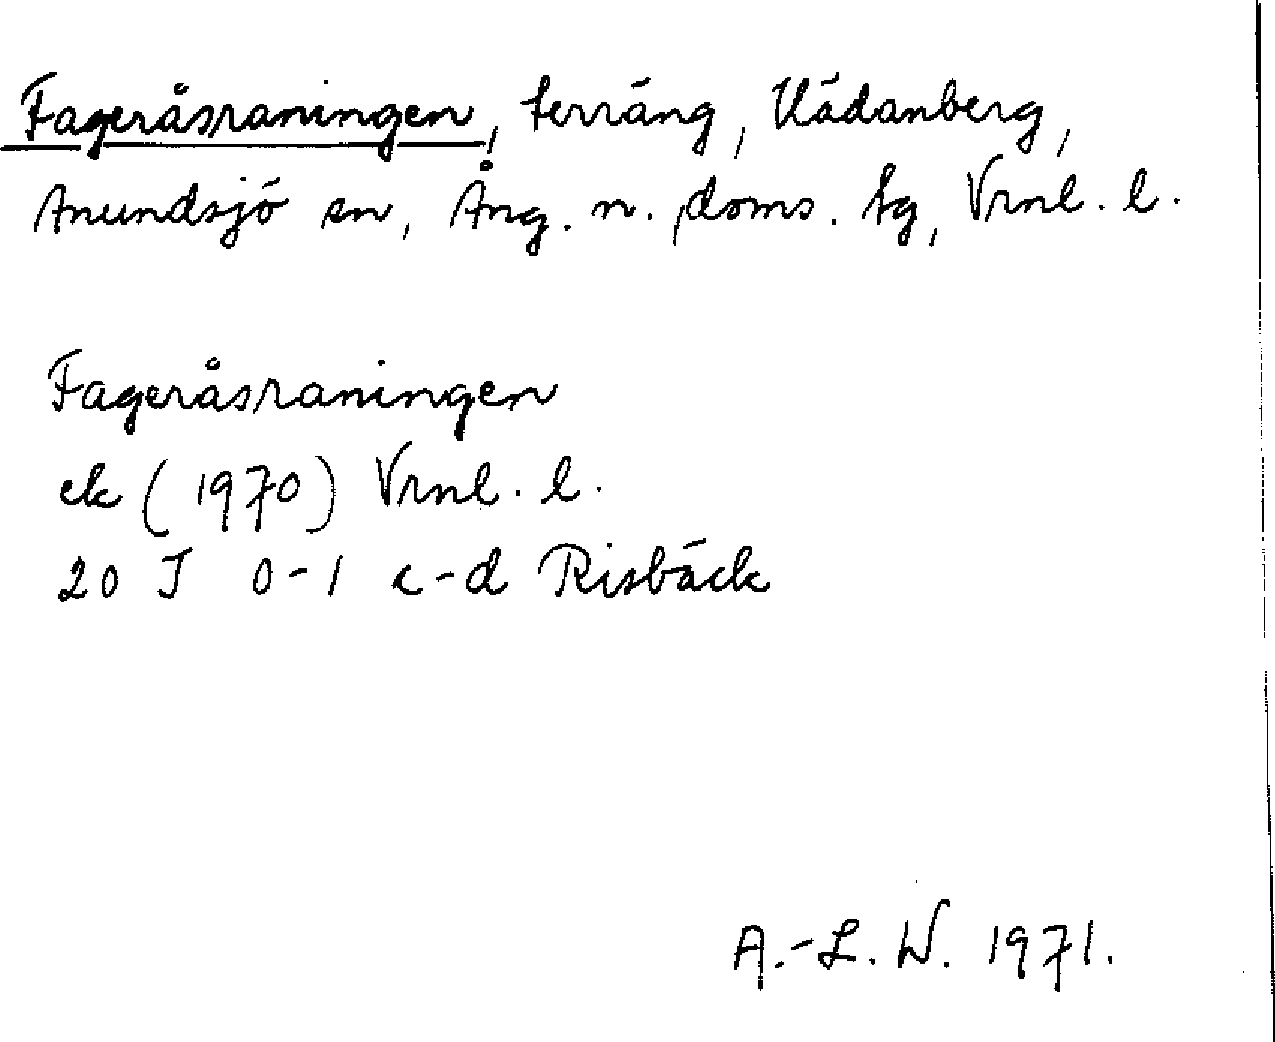 Fageråsraningen, terräng, Kädanberg,
Anundsjö sn, Ång. n. doms. tg, Vrnl. l.
Fageråsraningen
ek (1970) Vrnl. l.
20 J 0-1 c-d Risbäck
A.-L. W. 1971.